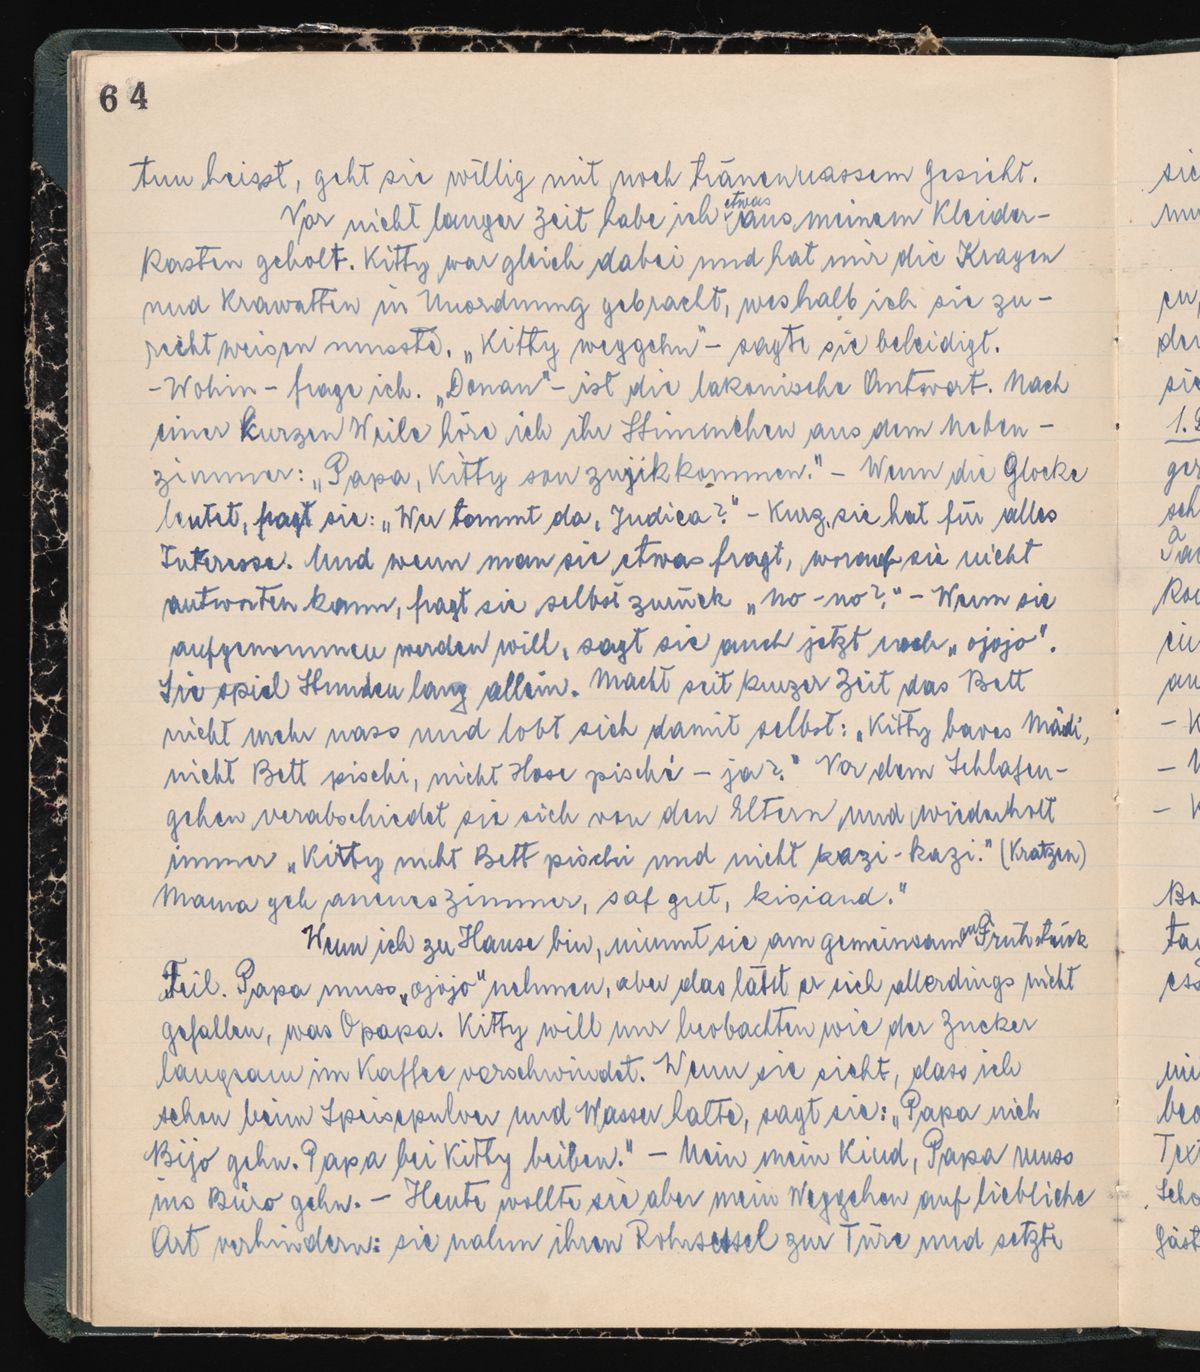 64
tun heisst, geht sie willig mit noch tränennassem Gesicht.
Vor nicht langer Zeit habe ich etwas aus meinem Kleider-
kasten geholt. Kitty war gleich dabei und hat mir die Kragen
und Krawatten in Unordnung gebracht, weshalb ich sie zu-
recht weisen musste. „Kitty weggehn" - sagte sie beleidigt.
- Wohin - frage ich. „Donau" - ist die lakonische Antwort. Nach
einer kurzen Weile höre ich ihr Stimmchen aus dem Neben-
zimmer: „Papa, Kitty son zujikkommen." - Wenn die Glocke
leutet, fragt sie: „Wer tommt da, Judica?" - Kurz, sie hat für alles
Interesse. Und wenn man sie etwas fragt, worauf sie nicht
antworten kann, fragt sie selbst zurück „no-no?" - Wenn sie
aufgenommen werden will, sagt sie auch jetzt noch „ojojo".
Sie spiel Stunden lang allein. Macht seit kurzer Zeit das Bett
nicht mehr nass und lobt sich damit selbst: „Kitty baves Mädi,
nicht Bett pischi, nicht Hose pischi - ja?" Vor dem Schlafen-
gehen verabschiedet sie sich von den Eltern und wiederholt
immer „Kitty nicht Bett pischi und nicht kazi-kazi." (Kratzen)
Mama geh aneues Zimmer, saf gut, kisiand."
Wenn ich zu Hause bin, nimmt sie am gemeinsamen Frühstück
Teil. Papa muss „ojojo" nehmen, aber das lässt er sich allerdings nicht
gefallen, was Opapa. Kitty will nur beobachten wie der Zucker
langsam im Kaffee verschwindet. Wenn sie sieht, dass ich
schon beim Speisepulver und Wasser halte, sagt sie: „Papa nich
Bijo gehn. Papa bei Kitty beiben." - Nein mein Kind, Papa muss
ins Büro gehn. - Heute wollte sie aber mein Weggehen auf liebliche
Art verhindern: sie nahm ihren Rohrsessel zur Türe und setzte